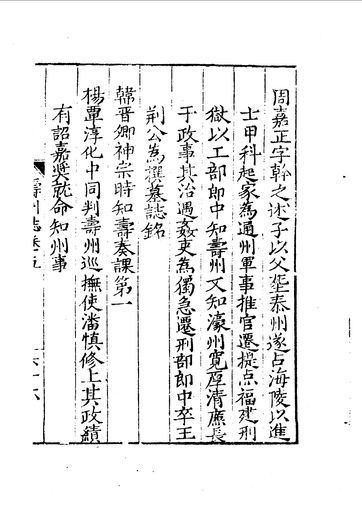 周嘉正字幹之述子以父塋泰州遂占海陵以進
士甲科起家為通州軍事推官遷提点福建刑
獄以工部郎中知壽州又知濠州寬厚清廉長
于政事其治遇姦吏為獨急遷刑部郎中卒王
荆公為撰墓誌銘
韓晉卿神宗時知壽奏課第一
楊覃淳化中同判壽州巡撫使潘慎修上其政績
有詔嘉奬就命知州事
壽州志卷五
六十六